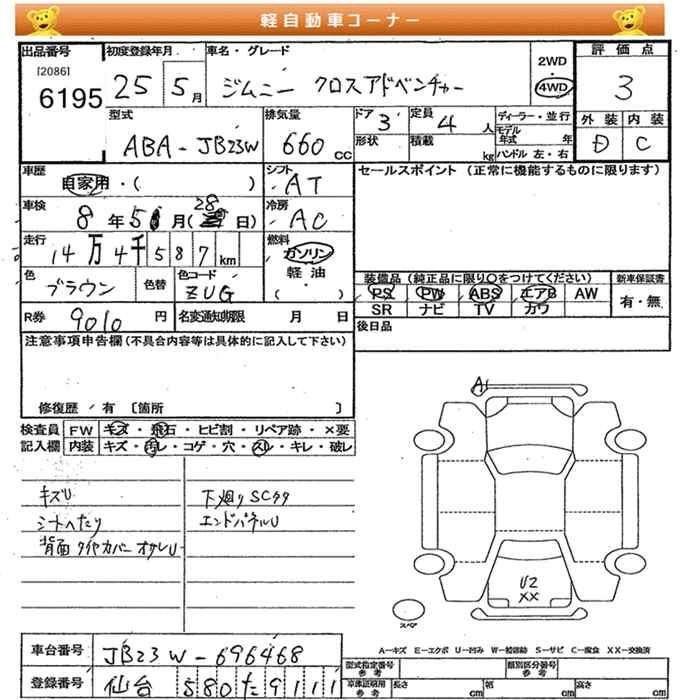 軽自動車コーナー
出品番号 初度登録年月 車名・グレード 評価点
[2086] 6195 25 5月 ジムニー クロスアドベンチャー 2WD 4WD 3
型式 排気量 ドア 3 定員 4 人 ディーラー・並行 外装 内装
ABA-JB23W 660 cc 形状 積載 kg モデル年式 年 ハンドル 左・右 D C
車歴 シフト セールスポイント (正常に機能するものに限ります)
自家用・( ) AT
車検 冷房
8年5月(28日) AC
走行 燃料
14万4千587km ガソリン
色 色替 色コード 軽油
ブラウン ZUG ( ・ )
装備品 (純正品に限り○をつけてください) 新車保証書
PS PW ABS エアB AW 有・無
SR ナビ TV カワ
R券 9010 円 名変通知期限 月 日 後日品
注意事項申告欄(不具合内容等は具体的に記入して下さい)
修復歴 / 有 [箇所 ]
検査員 FW キズ・飛石・ヒビ割・リペア跡・×要
記入欄 内装 キズ・汚レ・コゲ・穴・スレ・キレ・破レ
A1
キズU 下廻りSCサ
シートへたり エンドパネルU
背面タイヤカバーオサレU
U2
XX
スペア
A-キズ E-エクボ U-凹み W-補修跡 S-サビ C-腐食 XX-交換済
車台番号 JB23W-696468
型式指定番号 類別区分番号
登録番号 仙台 580 た 9111
車体証明用参考 長さ cm 幅 cm 高さ cm